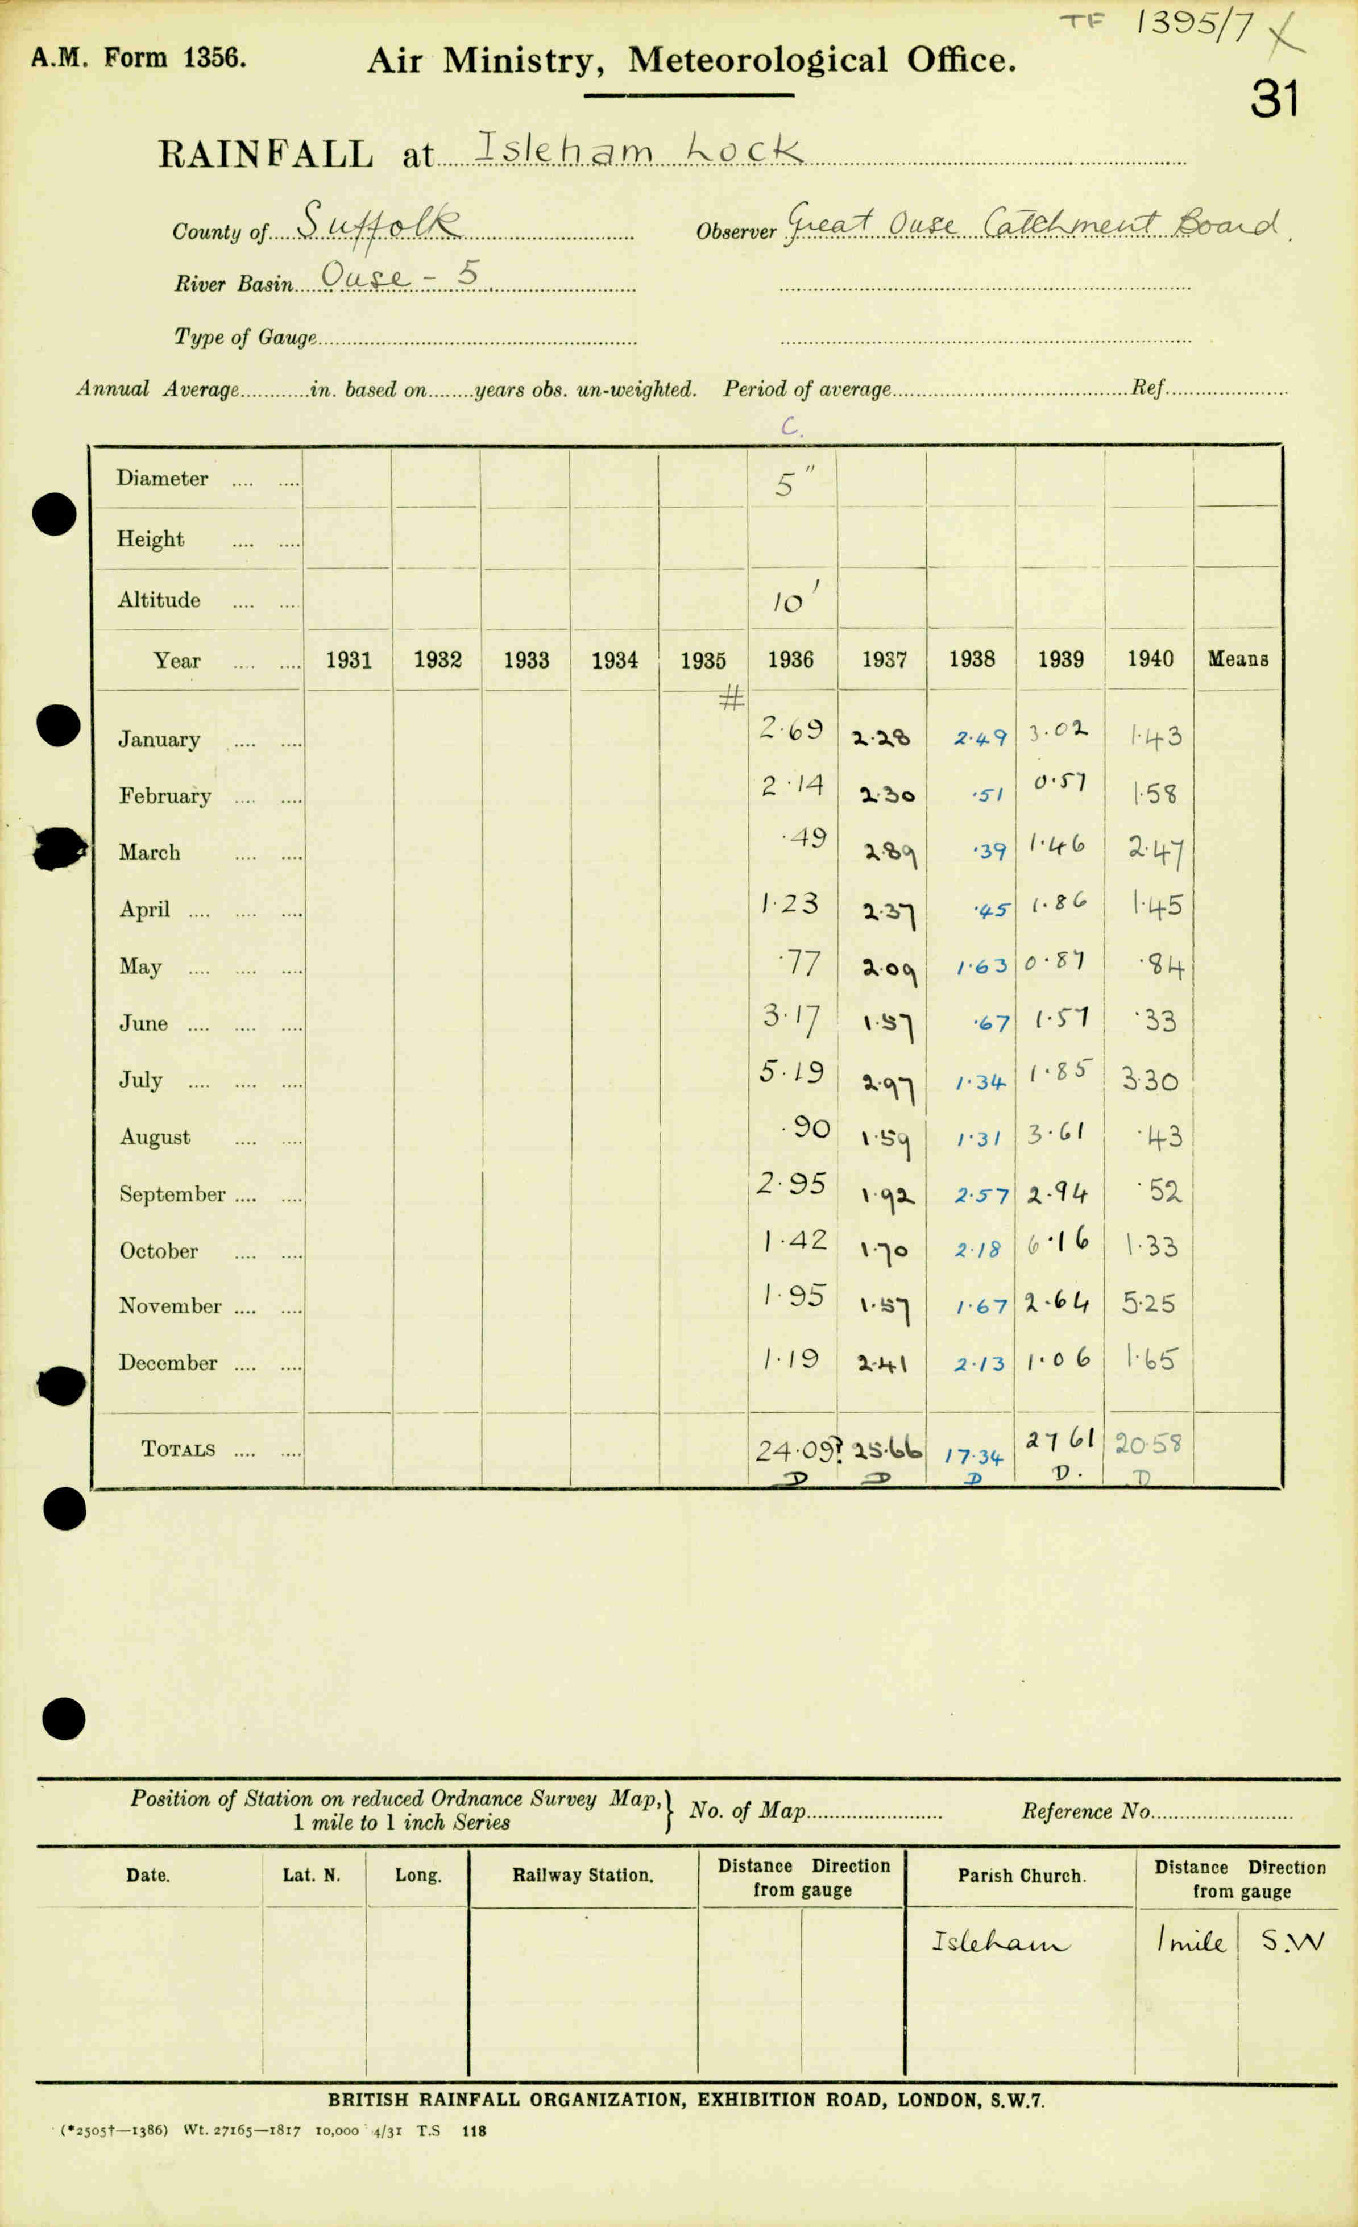 TF 1395/7 X
A.M. Form 1356. Air Ministry, Meteorological Office.
31
RAINFALL at Isleham Lock
County of Suffolk Observer Great Ouse Catchment Board.
River Basin Ouse - 5
Type of Gauge
Annual Average in. based on years obs. un-weighted. Period of average Ref.
C.
Diameter 5"
Height
Altitude 10'
Year 1931 1932 1933 1934 1935 1936 1937 1938 1939 1940 Means
#
January 2.69 2.28 2.49 3.02 1.43
February 2.14 2.30 .51 0.57 1.58
March .49 2.89 .39 1.46 2.47
April 1.23 2.37 .45 1.86 1.45
May .77 2.09 1.63 0.87 .84
June 3.17 1.57 .67 1.57 .33
July 5.19 2.97 1.34 1.85 3.30
August .90 1.59 1.31 3.61 .43
September 2.95 1.92 2.57 2.94 .52
October 1.42 1.70 2.18 6.16 1.33
November 1.95 1.57 1.67 2.64 5.25
December 1.19 2.41 2.13 1.06 1.65
TOTALS 24.09? 25.66 17.34 27 61 20.58
D D D D. D
Position of Station on reduced Ordnance Survey Map, } No. of Map Reference No.
1 mile to 1 inch Series
Date. Lat. N. Long. Railway Station. Distance Direction from gauge Parish Church. Distance Direction from gauge
Isleham 1 mile S.W
BRITISH RAINFALL ORGANIZATION, EXHIBITION ROAD, LONDON, S.W.7.
(*2505†—1386) Wt. 27165—1817 10,000 4/31 T.S 118